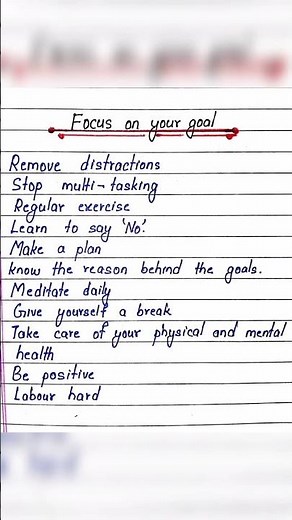 Focus on your goal
Remove distractions
Stop multi-tasking
Regular exercise
Learn to say 'No'.
Make a plan
know the reason behind the goals.
Meditate daily
Give yourself a break
Take care of your physical and mental
health
Be positive
Labour hard